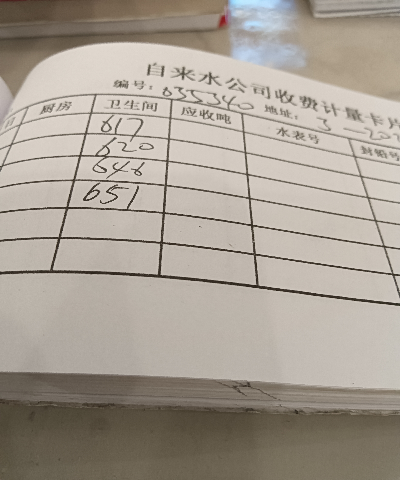 自来水公司收费计量卡片
编号: 035340 地址: 3-202
日 厨房 卫生间 应收吨 水表号 封铅号
617
620
646
651